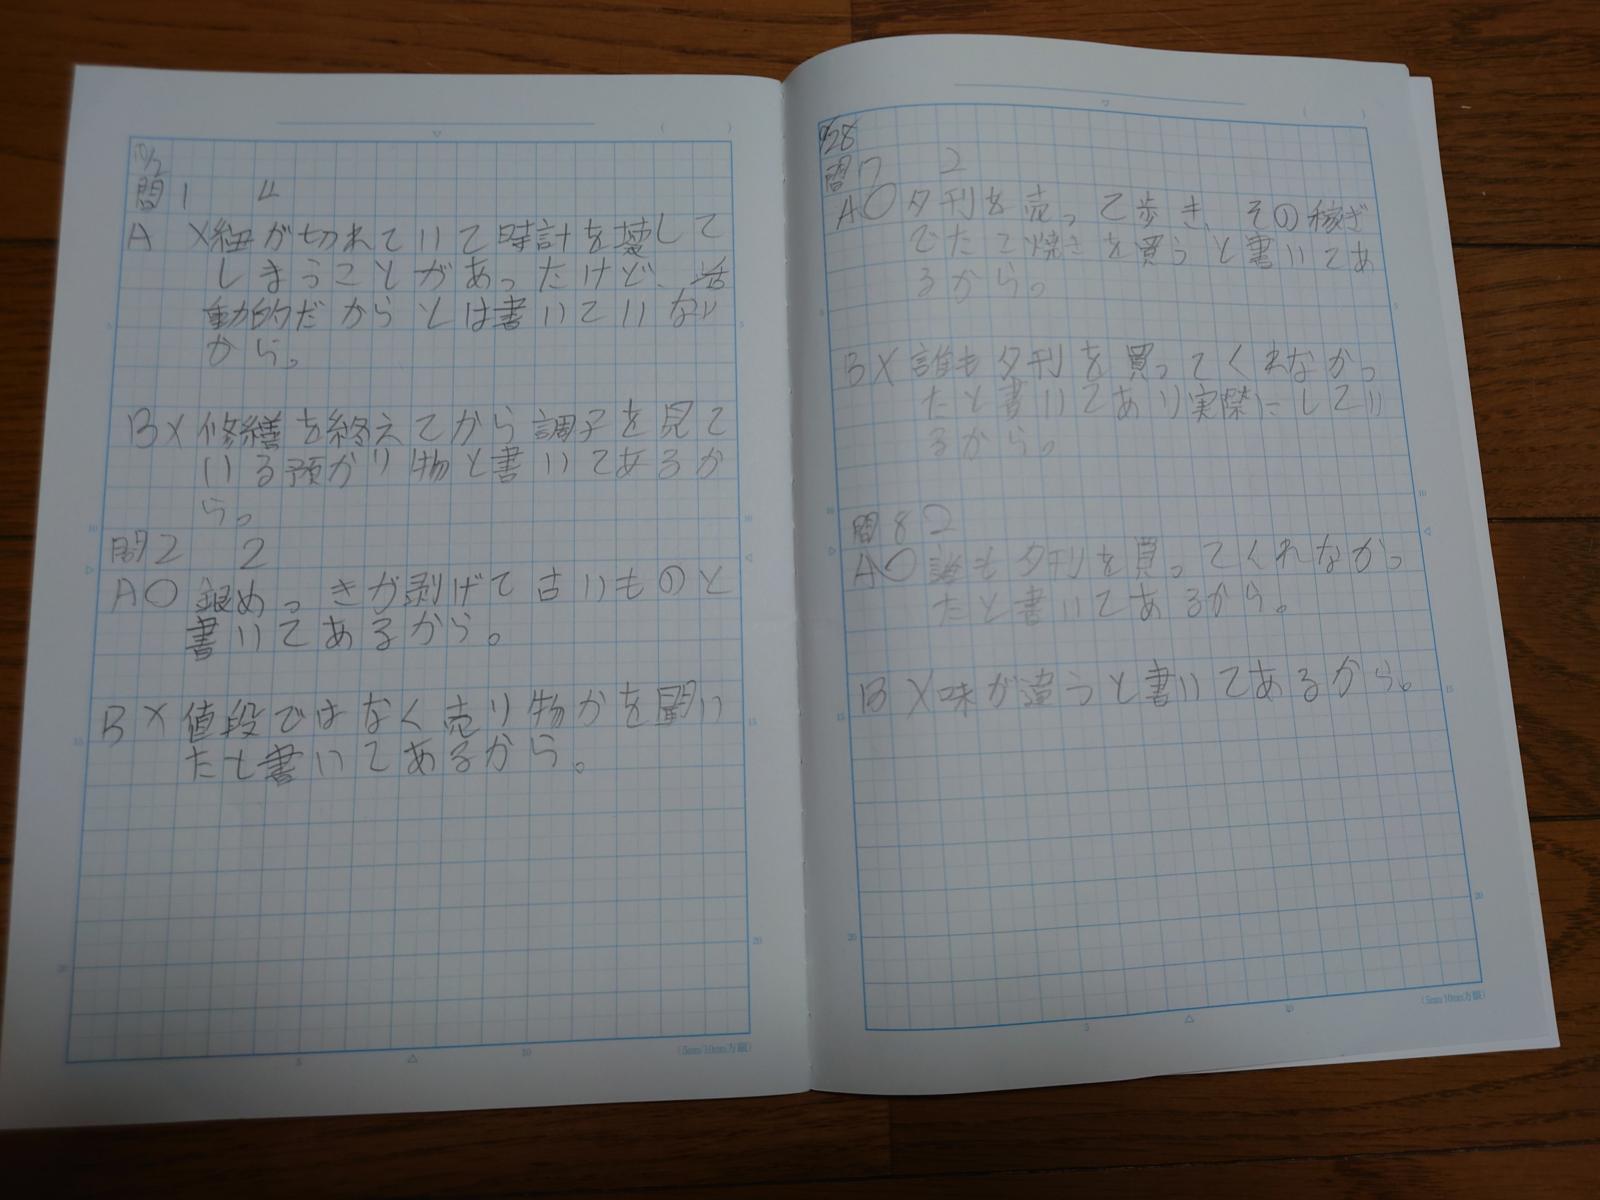 10/2
問1 4
A ×紐が切れていて時計を壊して
しまうことがあったけど、活
動的だからとは書いていない
から。
B×修繕を終えてから調子を見て
いる預かり物と書いてあるか
ら。
問2 2
A○ 銀めっきが剥げて古いものと
書いてあるから。
B × 値段ではなく売り物かを聞い
たと書いてあるから。
5
10
15
20
5
10
15
20
5
10
(5mm/10mm方眼)
9/28
問7 2
A○夕刊を売って歩き、その稼ぎ
でたこ焼きを買うと書いてあ
るから。
B×誰も夕刊を買ってくれなかっ
たと書いてあり実際にしてい
るから。
問8 2
A○誰も夕刊を買ってくれなかっ
たと書いてあるから。
B×味が違うと書いてあるから。
5
10
15
20
10
15
20
5
10
(5mm/10mm方眼)